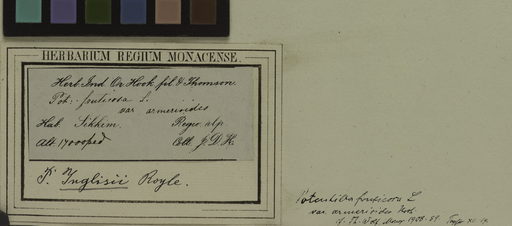 HERBARIUM REGIUM MONACENSE.
Herb. Ind. Or. Hook. fil. & Thomson.
Pot: fruticosa L.
var armerioides
Hab. Sikkim. Regio alp.
Alt. 17000 ped Coll. J. D. H.
P. Inglisii Royle.
Potentilla fruticosa L
var. armerioides Hook
Th. Wolf Monogr. 1908. 59.